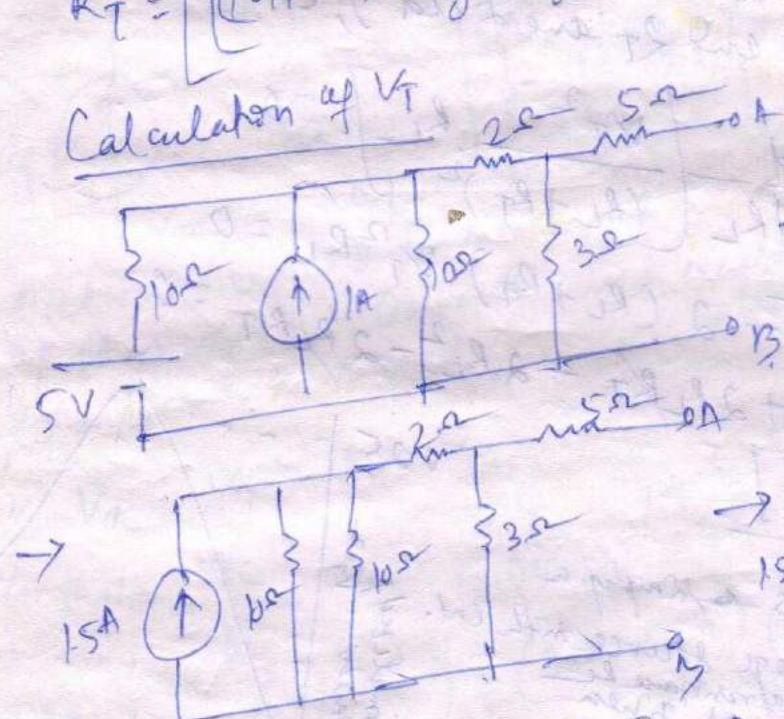 R_T =
Calculation of V_T
2Ω 5Ω A
10Ω 1A 10Ω 3Ω
B
5V
2Ω 5Ω A
→ 1.5A 10Ω 10Ω 3Ω →
B